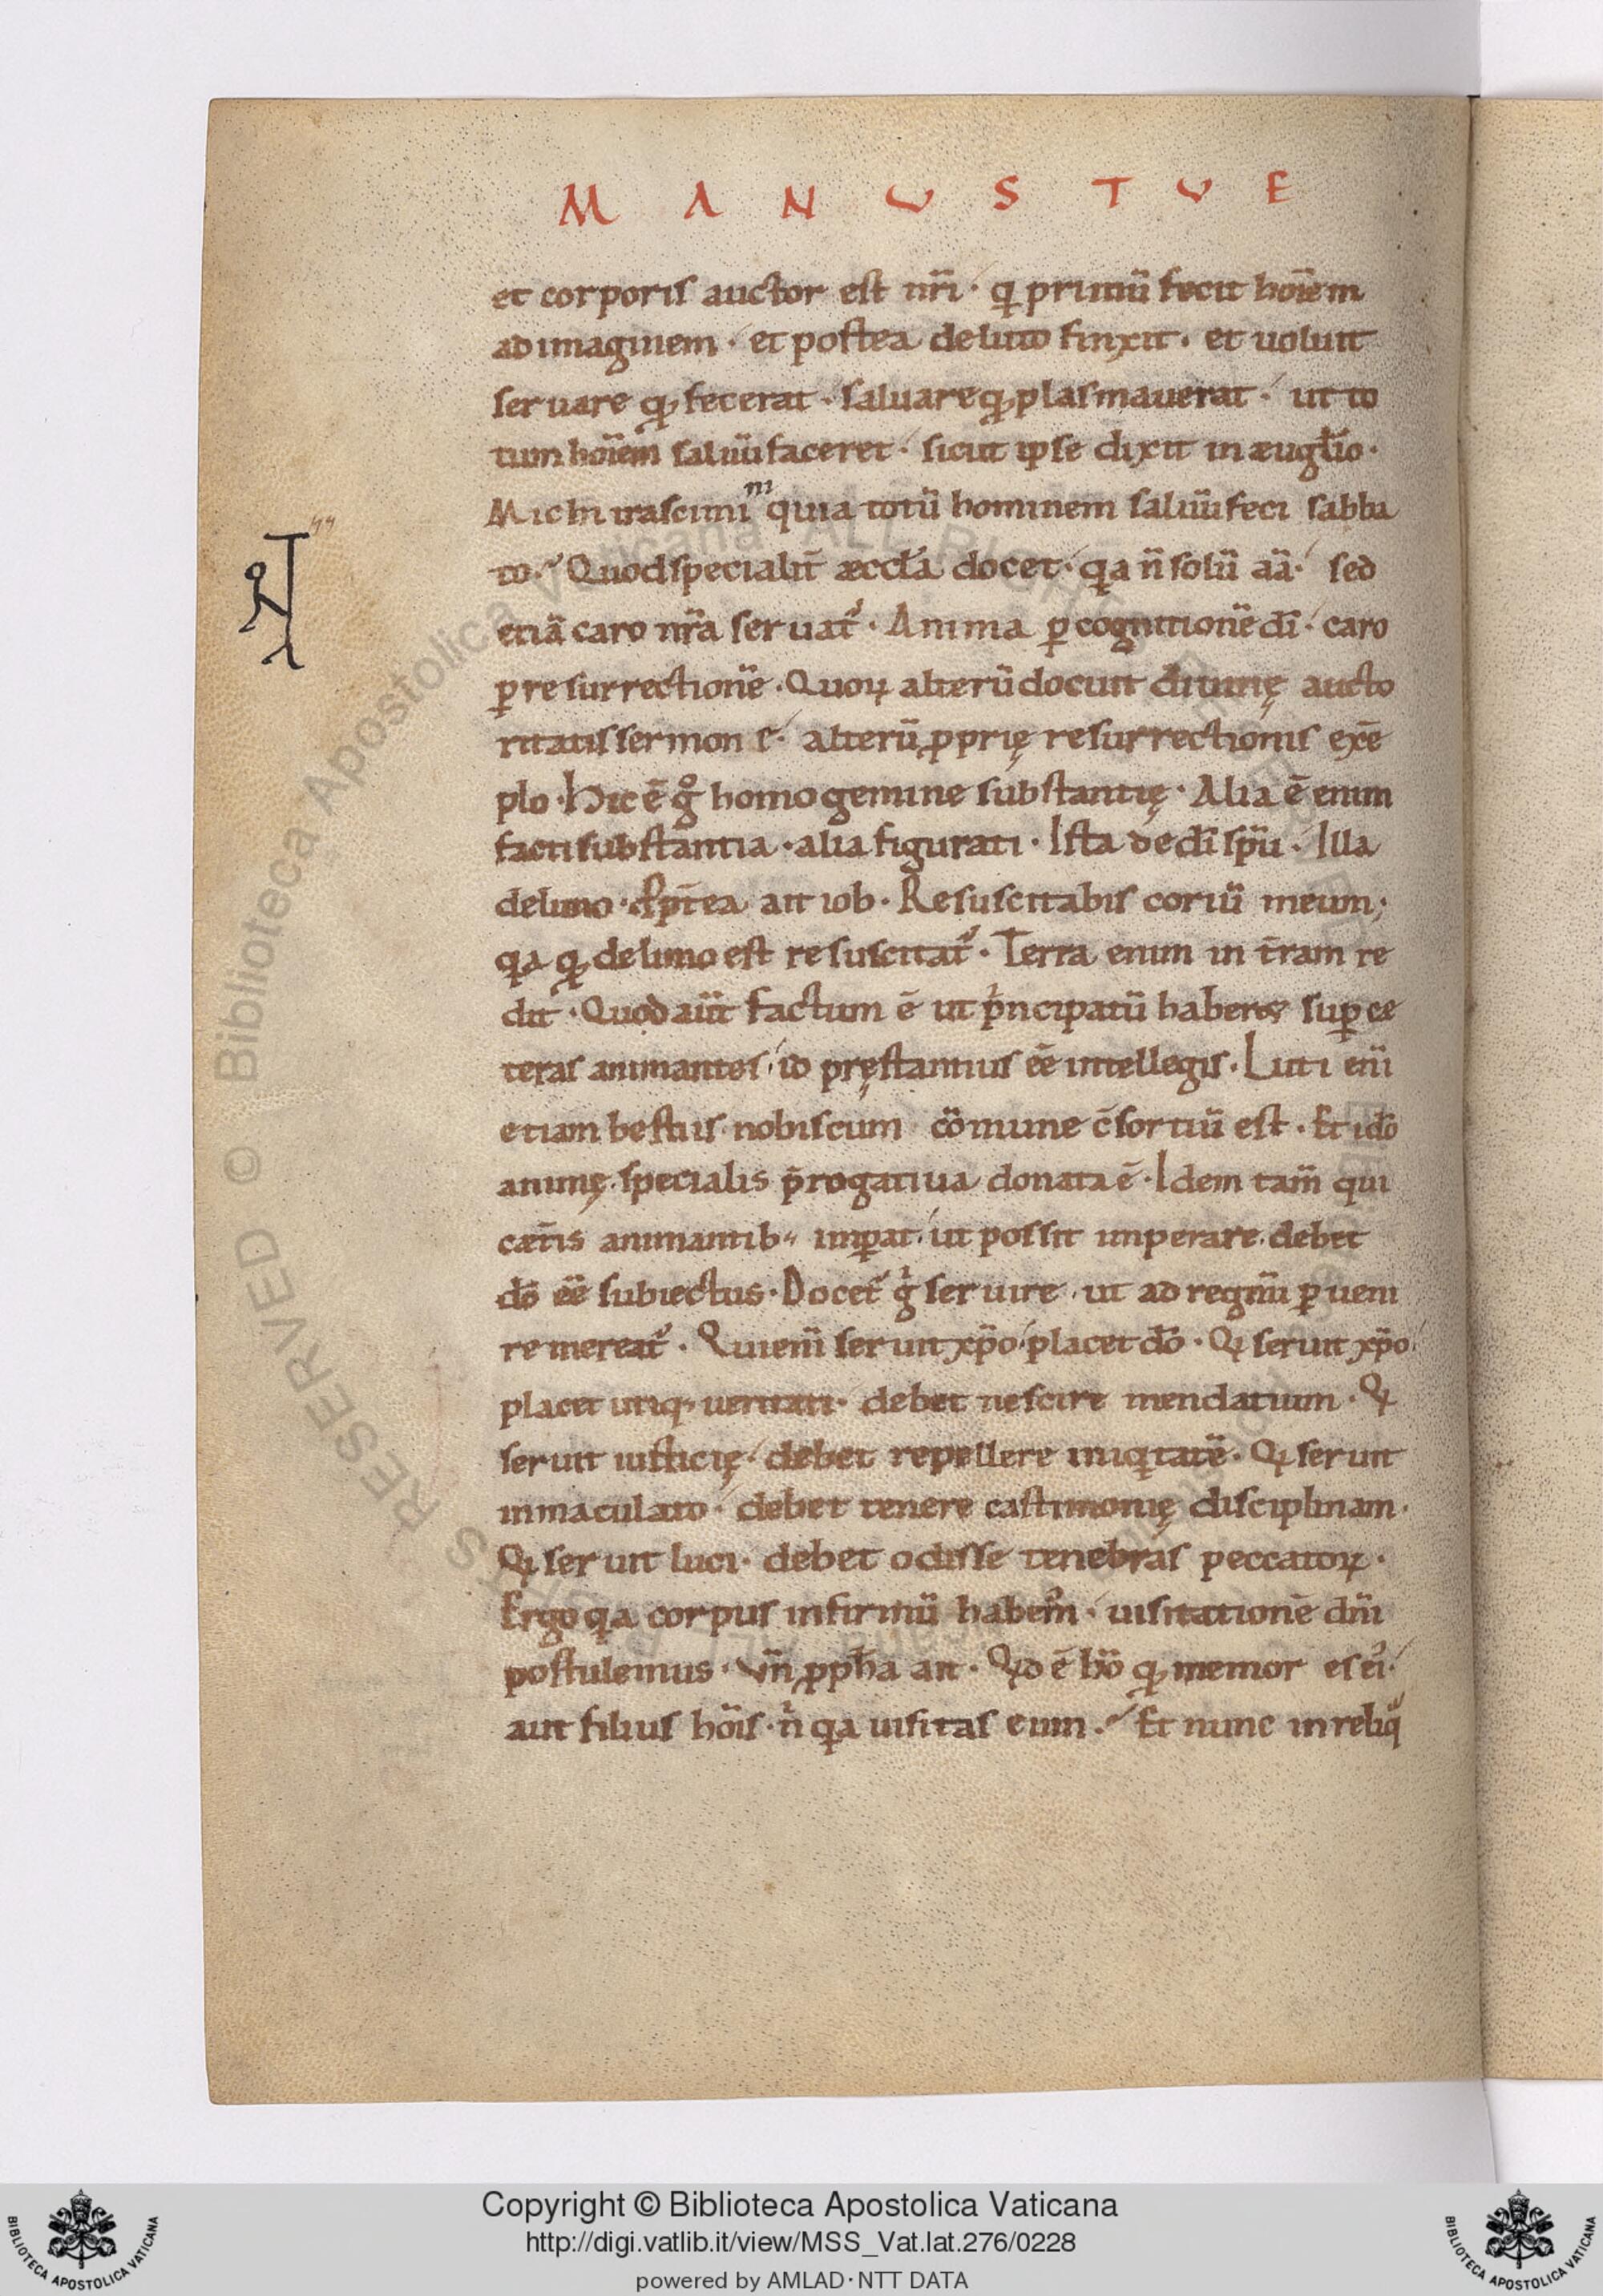 M A N U S T U E
et corporis auctor est nr̄i · q primū fecit hoīem
ad imaginem · et postea de luto finxit · et uoluit
seruare q̨ fecerat · saluare q̨ plasmauerat · ut to
tum hoīem saluū faceret · sicut ipse dixit in æuglio ·
Michi irascimini quia totū hominem saluū feci sabba
to · Quod specialit̄ æccl̄a docet · qa n̄ solū aā · sed
etiā caro nr̄a seruat᷑ · Anima ꝑ cognitionē dī · caro
ꝑ resurrectionē · Quoꝝ alterū docuit diuinę aucto
ritatis sermone · alterū ꝓprię resurrectionis exē
plo · Hic ē gͦ homo geminę substantię · Alia ē enim
facti substantia · alia figurati · Ista de dī spū · Illa
de limo · Ꝓpt̄ea ait iob · Resuscitabis coriū meum ;
qa q̨ de limo est resuscitat᷑ · Terra enim in t̄ram re
dit · Quod aūt factum ē ut pͥncipatū haberet suꝑ ce
teras animantes · id pręstantius eē intellegis · Luti enī
etiam bestiis nobiscum cōmune c̄sortiū est · Et ido
animę specialis p̄rogatiua donata ē · Idem tam̄ qui
cæt̄is animantib imꝑat · ut possit imperare debet
dō eē subiectus · Docet᷑ gͥ seruire · ut ad regnū ꝑueni
re mereat᷑ · Qui enī seruit xp̄o · placet dō · Qͥ seruit xp̄o ·
placet utiq ueritati · debet nescire mendatium · Qͥ
seruit iusticię · debet repellere iniqͥtatē · Qͥ seruit
inmaculato · debet tenere castimonię disciplinam ·
Qͥ seruit luci · debet odisse tenebras peccatoꝝ ·
Ergo qa corpus infirmū habem᷒ · uisitationē dn̄i
postulemus · Vn̄ ꝓph̄a ait · Qͥd ē hō q̨ memor es ei᷒ ·
aut filius hoīs · nͥ qa uisitas eum · Et nunc in reliq